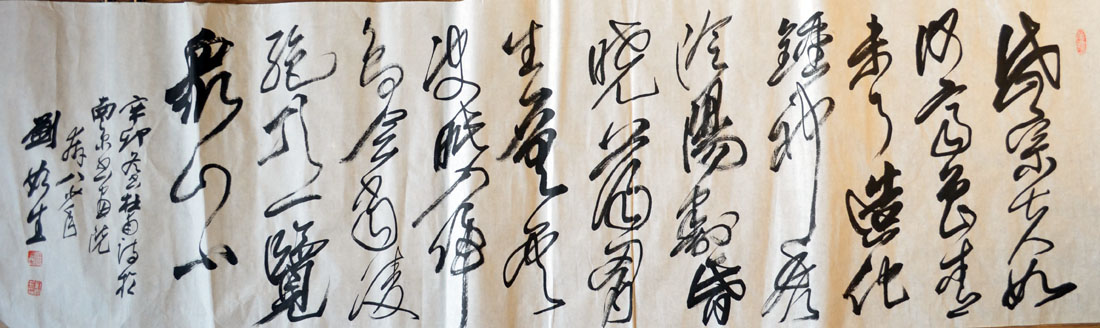 岱宗夫如
何齊魯青
未了造化
鍾神秀
陰陽割昏
曉蕩胸
生層雲
決眦入歸
鳥會當凌
絕頂一覽
眾山小
辛卯杜甫詩於
南京書畫院
八
劉生